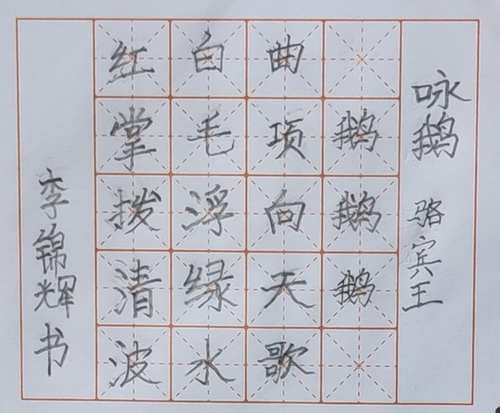 咏鹅 骆宾王
鹅鹅鹅
曲项向天歌
白毛浮绿水
红掌拨清波
李锦辉书